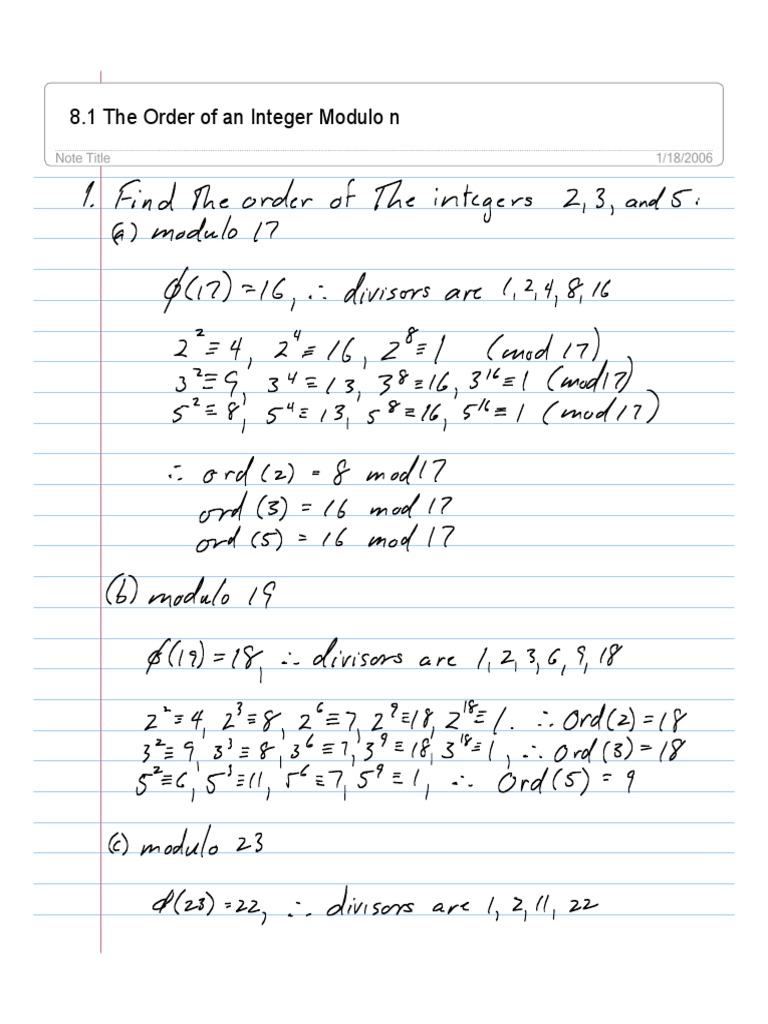 8.1 The Order of an Integer Modulo n
Note Title 1/18/2006
1. Find The order of The integers 2, 3, and 5:
(a) modulo 17
ϕ(17) = 16, ∴ divisors are 1, 2, 4, 8, 16
2² ≡ 4, 2⁴ ≡ 16, 2⁸ ≡ 1 (mod 17)
3² ≡ 9, 3⁴ ≡ 13, 3⁸ ≡ 16, 3¹⁶ ≡ 1 (mod 17)
5² ≡ 8, 5⁴ ≡ 13, 5⁸ ≡ 16, 5¹⁶ ≡ 1 (mod 17)
∴ ord (2) = 8 mod 17
ord (3) = 16 mod 17
ord (5) = 16 mod 17
(b) modulo 19
ϕ(19) = 18, ∴ divisors are 1, 2, 3, 6, 9, 18
2² ≡ 4, 2³ ≡ 8, 2⁶ ≡ 7, 2⁹ ≡ 18, 2¹⁸ ≡ 1. ∴ Ord(2) = 18
3² ≡ 9, 3³ ≡ 8, 3⁶ ≡ 7, 3⁹ ≡ 18, 3¹⁸ ≡ 1, ∴ Ord (3) = 18
5² ≡ 6, 5³ ≡ 11, 5⁶ ≡ 7, 5⁹ ≡ 1, ∴ Ord(5) = 9
(c) modulo 23
ϕ(23) = 22, ∴ divisors are 1, 2, 11, 22